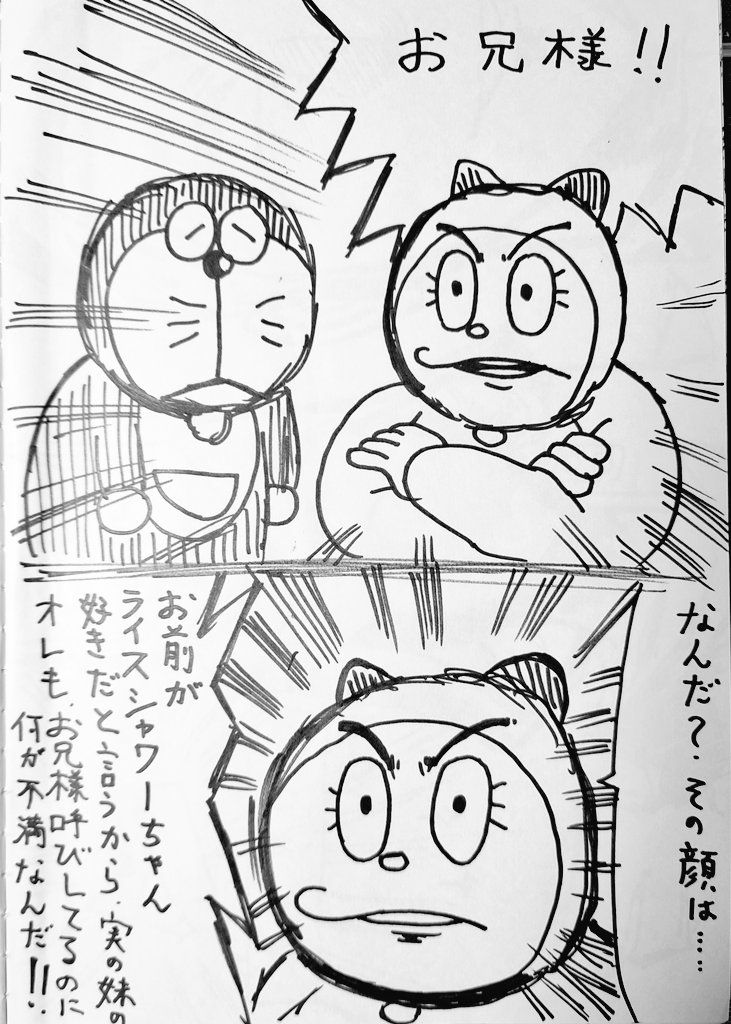 お兄様!!
なんだ?、その顔は……
お前が
ライスシャワーちゃん
好きだと言うから、実の妹の
オレも、お兄様呼びしてるのに
何が不満なんだ!!